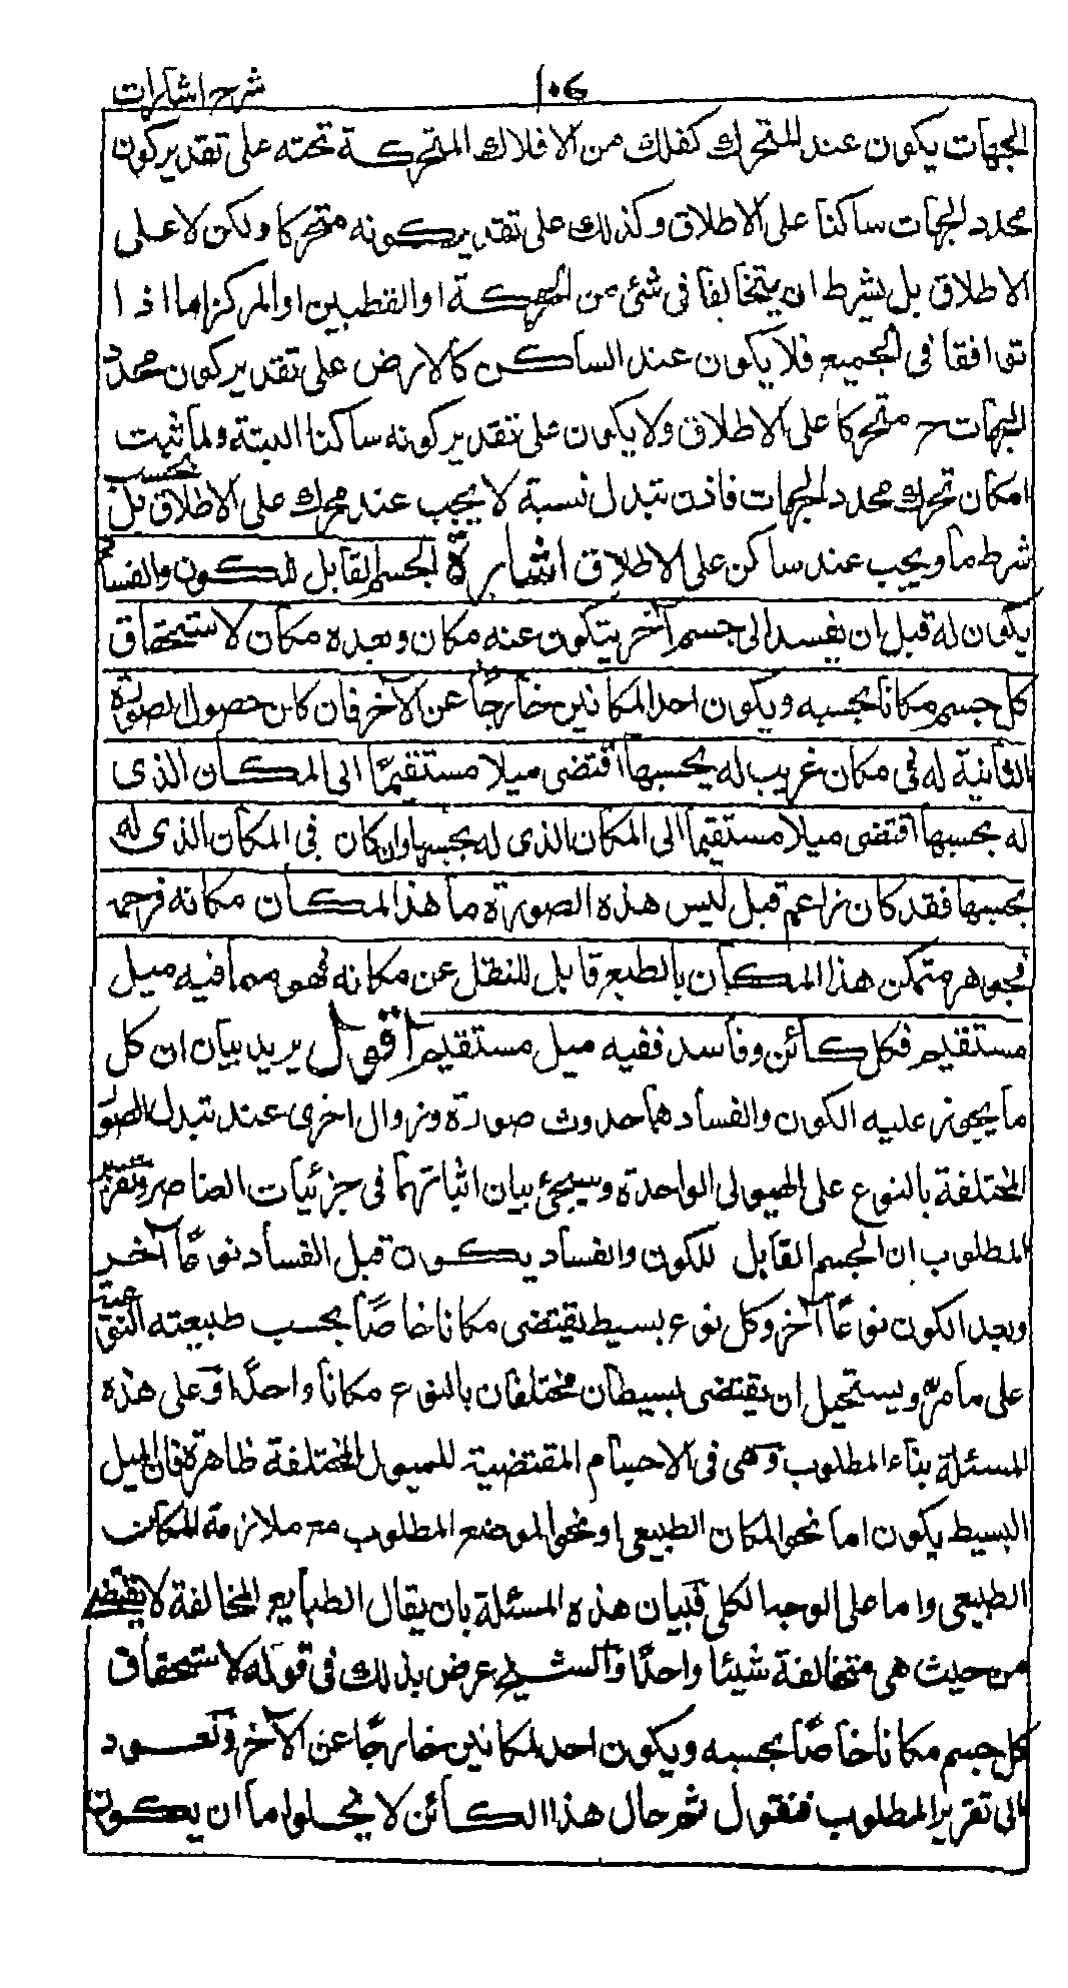 شرح اشارات
١٠٦
الجهات يكون عند المتحرك كفلك من الافلاك المتحركة تحته على تقدير كون
محدد الجهات ساكنا على الاطلاق وكذلك على تقدير كونه متحركا ولكن لا على
الاطلاق بل بشرط ان يتخالفا فى شئ من الحركة او القطبين او المركز اما اذا
توافقا فى الجميع فلا يكون عند الساكن كالارض على تقدير كون محدد
الجهات ح متحركا على الاطلاق ولا يكون على تقدير كونه ساكنا البتة ولما ثبت
امكان تحرك محدد الجهات فاذن تبدل نسبة لا يجب عند محرك على الاطلاق بل بحسب
شرط ما ويجب عند ساكن على الاطلاق اشارة الجسم القابل للكون والفساد
يكون له قبل ان يفسد الى جسم آخر يتكون عنه مكان وبعده مكان لاستحقاق
كل جسم مكانا بحسبه ويكون احد المكانين خارجًا عن الآخر فان كان حصول الصورة
الثانية له فى مكان غريب له بحسبها اقتضى ميلا مستقيمًا الى المكان الذى
له بحسبها اقتضى ميلا مستقيما الى المكان الذى له بحسبها وان كان فى المكان الذى له
بحسبها فقد كان زاحم قبل لبس هذه الصورة ما هذا المكان مكانه فزحمه
فجوهر متمكن هذا المكان بالطبع قابل للنقل عن مكانه فهو مما فيه ميل
مستقيم فكل كائن وفاسد ففيه ميل مستقيم اقول يريد بيان ان كل
ما يجوز عليه الكون والفساد هما حدوث صورة وزوال اخرى عند تبدل الصور
المختلفة بالنوع على الهيولى الواحدة وسيجئ بيان اثباتهما فى جزئيات العناصر وتقرير
المطلوب ان الجسم القابل للكون والفساد يكون قبل الفساد نوعًا آخر
وبعد الكون نوعًا آخر وكل نوع بسيط يقتضى مكانا خاصًا بحسب طبيعته النوعية
على ما مر ويستحيل ان يقتضى بسيطان مختلفان بالنوع مكانا واحدًا وعلى هذه
المسئلة بناء المطلوب وهى فى الاجسام المقتضية للميول المختلفة ظاهرة فان الميل
البسيط يكون اما نحو المكان الطبيعى او نحو الموضع المطلوب مع ملازمة المكان
الطبيعى واما على الوجه الكلى فبيان هذه المسئلة بان يقال الطبايع المخالفة لا يقتضى
من حيث هى متخالفة شيئا واحدًا والشيخ عرض بذلك فى قوله لاستحقاق
كل جسم مكانا خاصًا بحسبه ويكون احد المكانين خارجًا عن الآخر ونعود
الى تقرير المطلوب فنقول ثم حال هذا الكائن لا يخلوا ما ان يكون